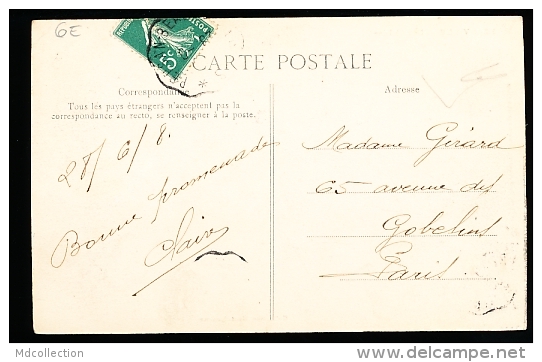 6E
5c
CARTE POSTALE
Correspondance
Adresse
Tous les pays étrangers n'acceptent pas la
correspondance au recto, se renseigner à la poste.
28/6/8.
Bonne promenade
Claire
Madame Girard
65 avenue des
Gobelins
Paris
Mdcollection
http://www.delcampe.net